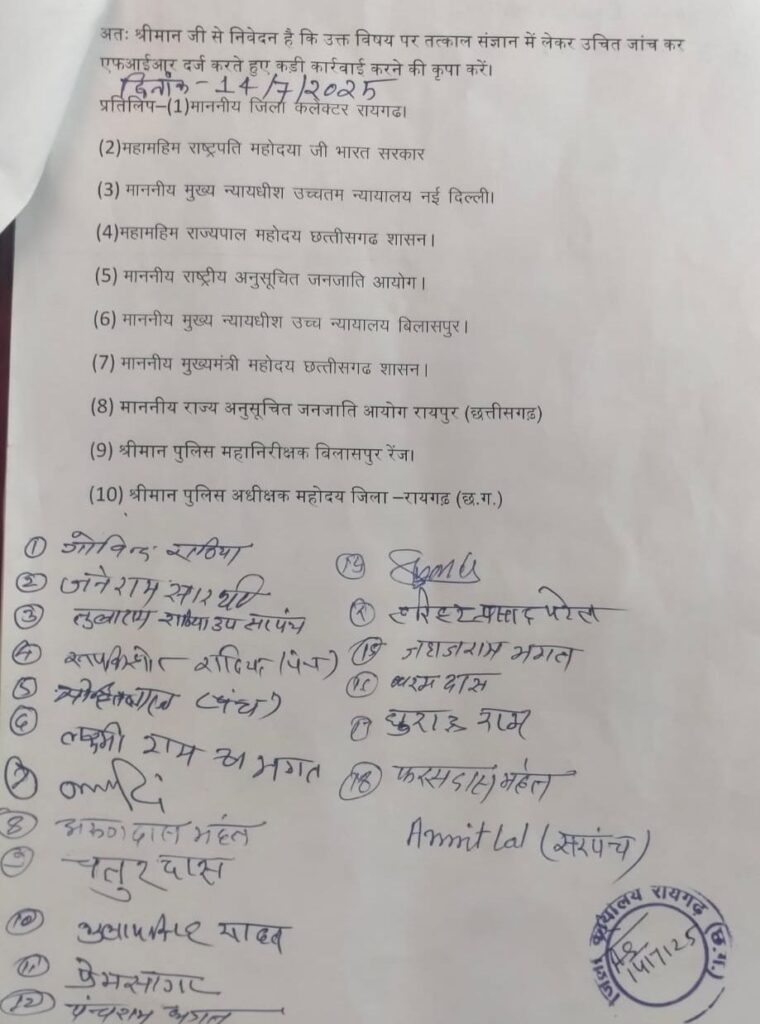 अतः श्रीमान जी से निवेदन है कि उक्त विषय पर तत्काल संज्ञान में लेकर उचित जांच कर
एफआईआर दर्ज करते हुए कडी कार्रवाई करने की कृपा करें।
दिनांक - 14/7/2025
प्रतिलिप–(1)माननीय जिला कलेक्टर रायगढ।
(2)महामहिम राष्ट्रपति महोदया जी भारत सरकार
(3) माननीय मुख्य न्यायधीश उच्चतम न्यायालय नई दिल्ली।
(4)महामहिम राज्यपाल महोदय छत्तीसगढ शासन।
(5) माननीय राष्ट्रीय अनुसूचित जनजाति आयोग।
(6) माननीय मुख्य न्यायधीश उच्च न्यायालय बिलासपुर।
(7) माननीय मुख्यमंत्री महोदय छत्तीसगढ शासन।
(8) माननीय राज्य अनुसूचित जनजाति आयोग रायपुर (छत्तीसगढ़)
(9) श्रीमान पुलिस महानिरीक्षक बिलासपुर रेंज।
(10) श्रीमान पुलिस अधीक्षक महोदय जिला –रायगढ़ (छ.ग.)
1 गोविन्द राठिया
2 जनेराम सारथी
3 तुलाराम राठिया उप सरपंच
4 (पंच)
5 (पंच)
6 लक्ष्मी राम भगत
7
8 अरुणदास महंत
9 चतुरदास
10 यादव
11 प्रेमसागर
12 पंचराम भगत
हरिहर प्रसाद पटेल
जहाजराम भगत
दास
17 घुराऊ राम
18 फरसदास महंत
Amrit Lal (सरपंच)
जिला कार्यालय रायगढ़ (छ.ग.)
14/7/25